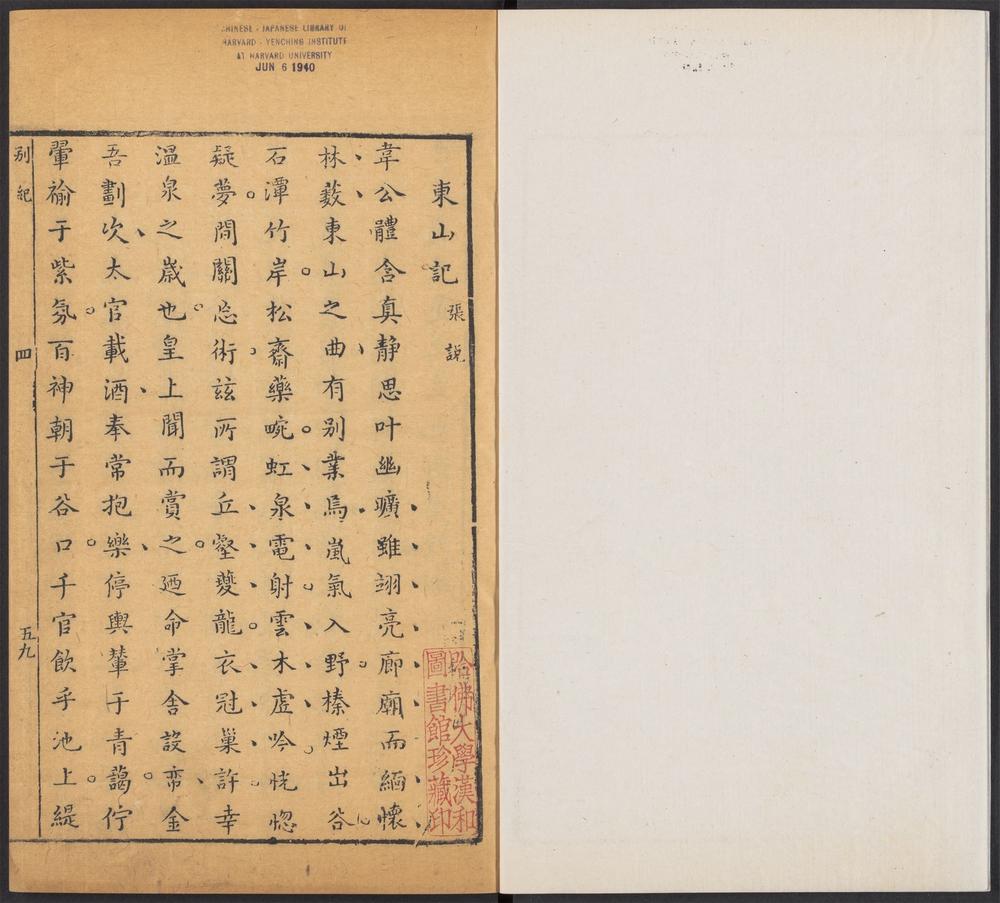 CHINESE - JAPANESE LIBRARY OF
HARVARD - YENCHING INSTITUTE
AT HARVARD UNIVERSITY
JUN 6 1940
東山記
張說
韋公體含真靜思叶幽曠雖翊亮廊廟而緬懷
林藪東山之曲有別業焉嵐氣入野榛煙出谷
石潭竹岸松齋藥畹虹泉電射雲木虛吟恍惚
疑夢間關忘術玆所謂丘壑夔龍衣冠巢許幸
溫泉之歲也皇上聞而賞之廼命掌舍設帟金
吾劃次太官載酒奉常抱樂停輿輦于青靄佇
翬褕于紫氛百神朝于谷口千官飲乎池上緹
別紀
四
五九
哈佛大學漢和
圖書館珍藏印